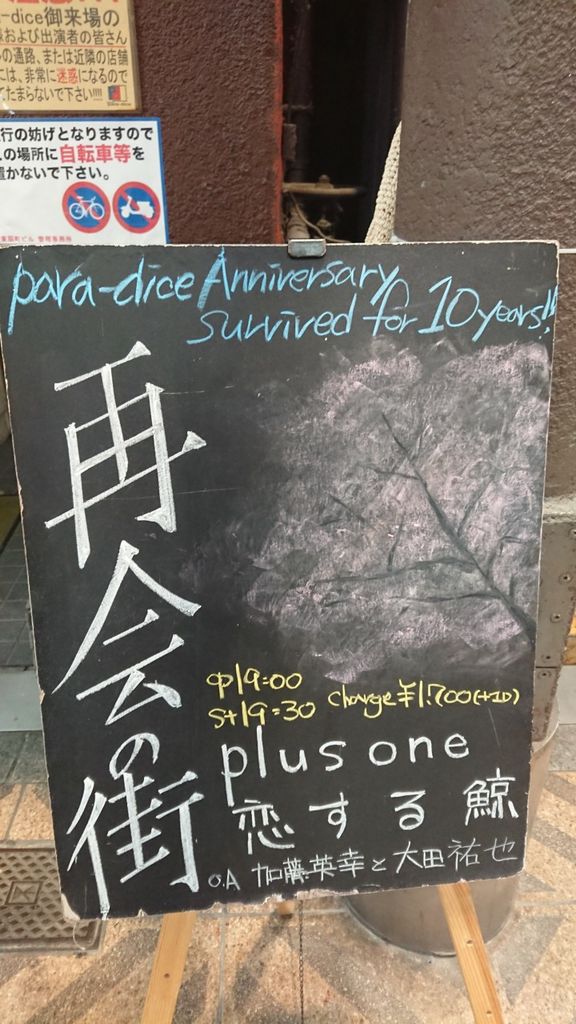 -dice御来場の
および出演者の皆さん
の通路、または近隣の店舗
には、非常に迷惑になるので
たまらないで下さい!!!!
行の妨げとなりますので
の場所に自転車等を
置かないで下さい。
para-dice Anniversary
survived for 10 years!!
再会の街
op19:00
st19:30 charge ¥1.700(+1D)
plus one
恋する鯨
O.A 加藤英幸と大田祐也